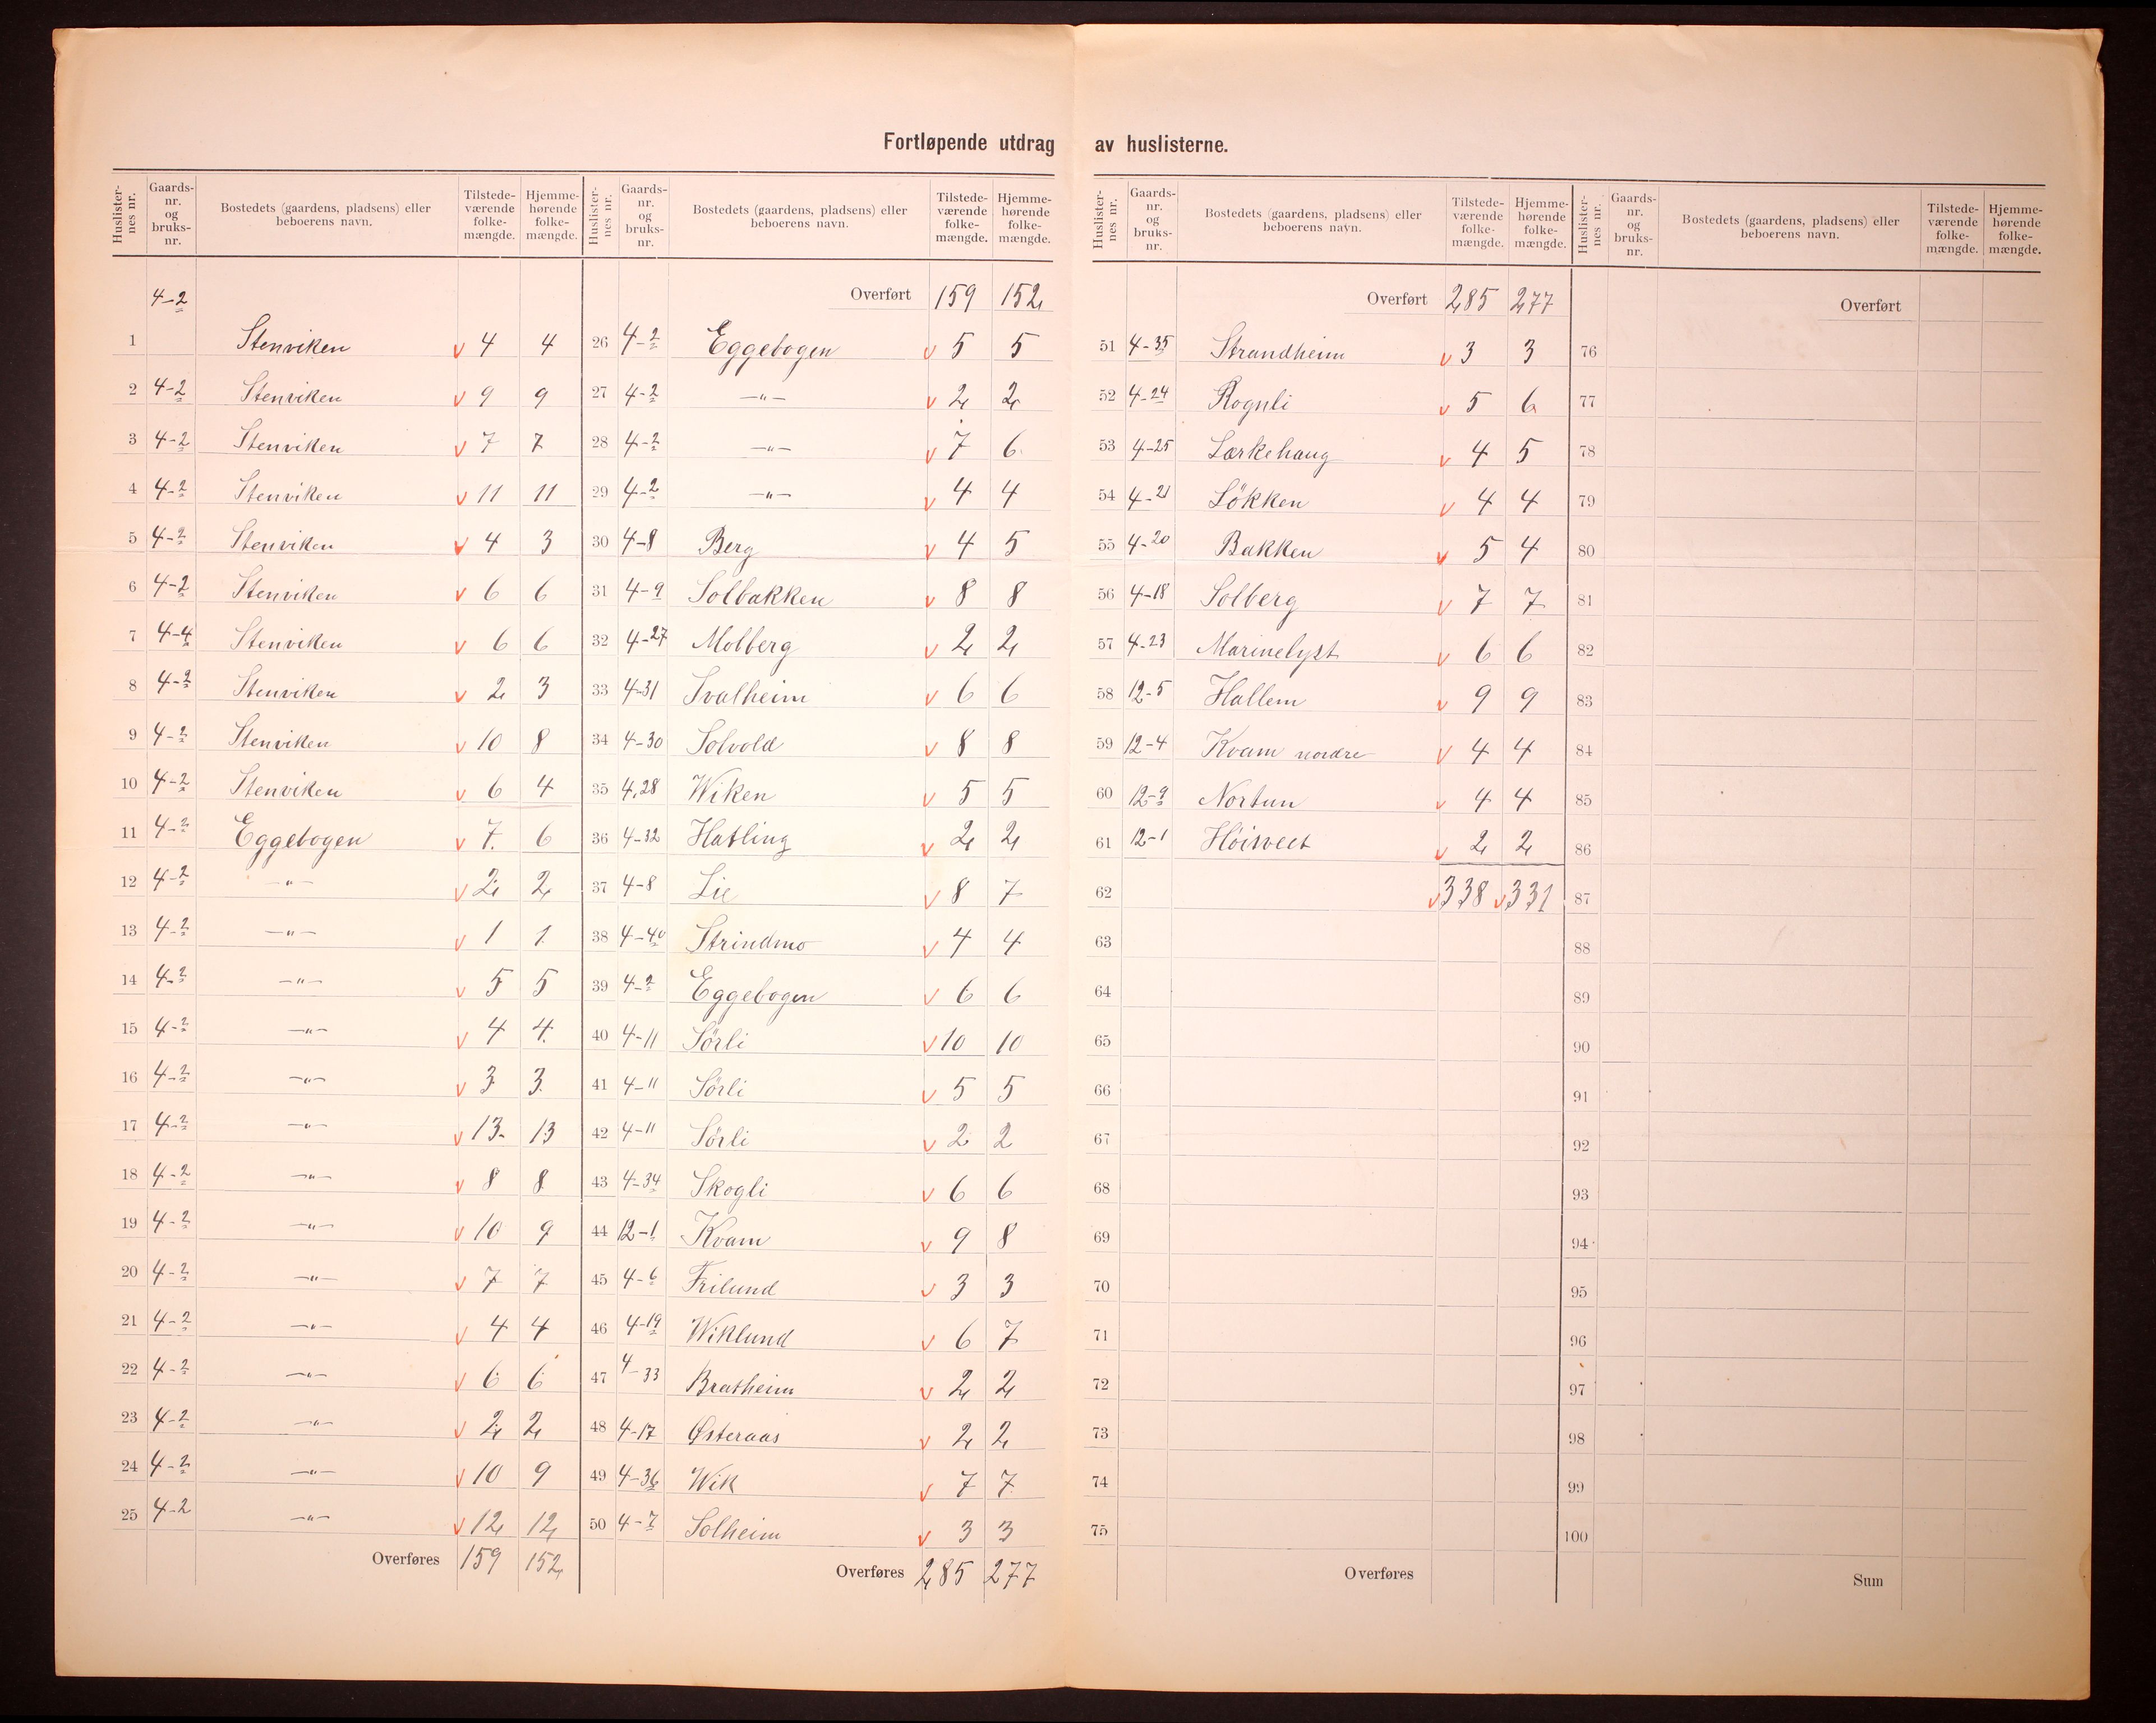 Fortløpende utdrag av huslisterne.
Huslister-nes nr. Gaards-nr. og bruks-nr. Bostedets (gaardens, pladsens) eller beboerens navn. Tilstede-værende folke-mængde. Hjemme-hørende folke-mængde.
4-2
1 Stenviken v 4 4
2 4-2 Stenviken v 9 9
3 4-2 Stenviken v 7 7
4 4-2 Stenviken v 11 11
5 4-2 Stenviken v 4 3
6 4-2 Stenviken v 6 6
7 4-4 Stenviken v 6 6
8 4-2 Stenviken v 2 3
9 4-2 Stenviken v 10 8
10 4-2 Stenviken v 6 4
11 4-2 Eggebogen v 7 6
12 4-2 -"- v 2 2
13 4-2 -"- v 1 1
14 4-2 -"- v 5 5
15 4-2 -"- v 4 4
16 4-2 -"- v 3 3
17 4-2 -"- v 13 13
18 4-2 -"- v 8 8
19 4-2 -"- v 10 9
20 4-2 -"- v 7 7
21 4-2 -"- v 4 4
22 4-2 -"- v 6 6
23 4-2 -"- v 2 2
24 4-2 -"- v 10 9
25 4-2 -"- v 12 12
Overføres 159 152
Huslister-nes nr. Gaards-nr. og bruks-nr. Bostedets (gaardens, pladsens) eller beboerens navn. Tilstede-værende folke-mængde. Hjemme-hørende folke-mængde.
Overført 159 152
26 4-2 Eggebogen v 5 5
27 4-2 -"- v 2 2
28 4-2 -"- v 7 6
29 4-2 -"- v 4 4
30 4-8 Berg v 4 5
31 4-9 Solbakken v 8 8
32 4-27 Molberg v 2 2
33 4-31 Svalheim v 6 6
34 4-30 Solvold v 8 8
35 4,28 Wiken v 5 5
36 4-32 Hatling v 2 2
37 4-8 Lie v 8 7
38 4-40 Strindmo v 4 4
39 4-2 Eggebogen v 6 6
40 4-11 Sörli v 10 10
41 4-11 Sörli v 5 5
42 4-11 Sörli v 2 2
43 4-34 Skogli v 6 6
44 12-1 Kvam v 9 8
45 4-6 Frilund v 3 3
46 4-19 Wiklund v 6 7
47 4-33 Bratheim v 2 2
48 4-17 Østeraas v 2 2
49 4-36 Wik v 7 7
50 4-7 Solheim v 3 3
Overføres 285 277
Huslister-nes nr. Gaards-nr. og bruks-nr. Bostedets (gaardens, pladsens) eller beboerens navn. Tilstede-værende folke-mængde. Hjemme-hørende folke-mængde.
Overført 285 277
51 4-35 Strandheim v 3 3
52 4-24 Rognli v 5 6
53 4-25 Lærkehaug v 4 5
54 4-21 Lökken v 4 4
55 4-20 Bakken v 5 4
56 4-18 Solberg v 7 7
57 4-23 Marinelyst v 6 6
58 12-5 Hallem v 9 9
59 12-4 Kvam nordre v 4 4
60 12-9 Nortun v 4 4
61 12-1 v 2 2
62 v 338 v 331
63
64
65
66
67
68
69
70
71
72
73
74
75
Overføres
Huslister-nes nr. Gaards-nr. og bruks-nr. Bostedets (gaardens, pladsens) eller beboerens navn. Tilstede-værende folke-mængde. Hjemme-hørende folke-mængde.
Overført
76
77
78
79
80
81
82
83
84
85
86
87
88
89
90
91
92
93
94
95
96
97
98
99
100
Sum